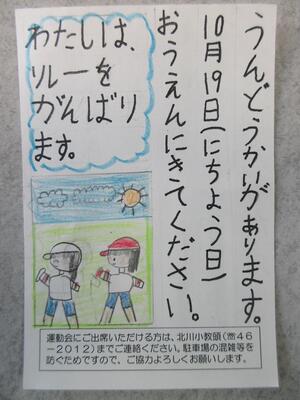 うんどうかいがあります。
10月19日(にちよう日)
おうえんにきてください。
わたしは、
リレーを
がんばり
ます。
運動会にご出席いただける方は、北川小教頭(☎46
-2012)までご連絡ください。駐車場の混雑等を
防ぐためですので、ご協力よろしくお願いします。